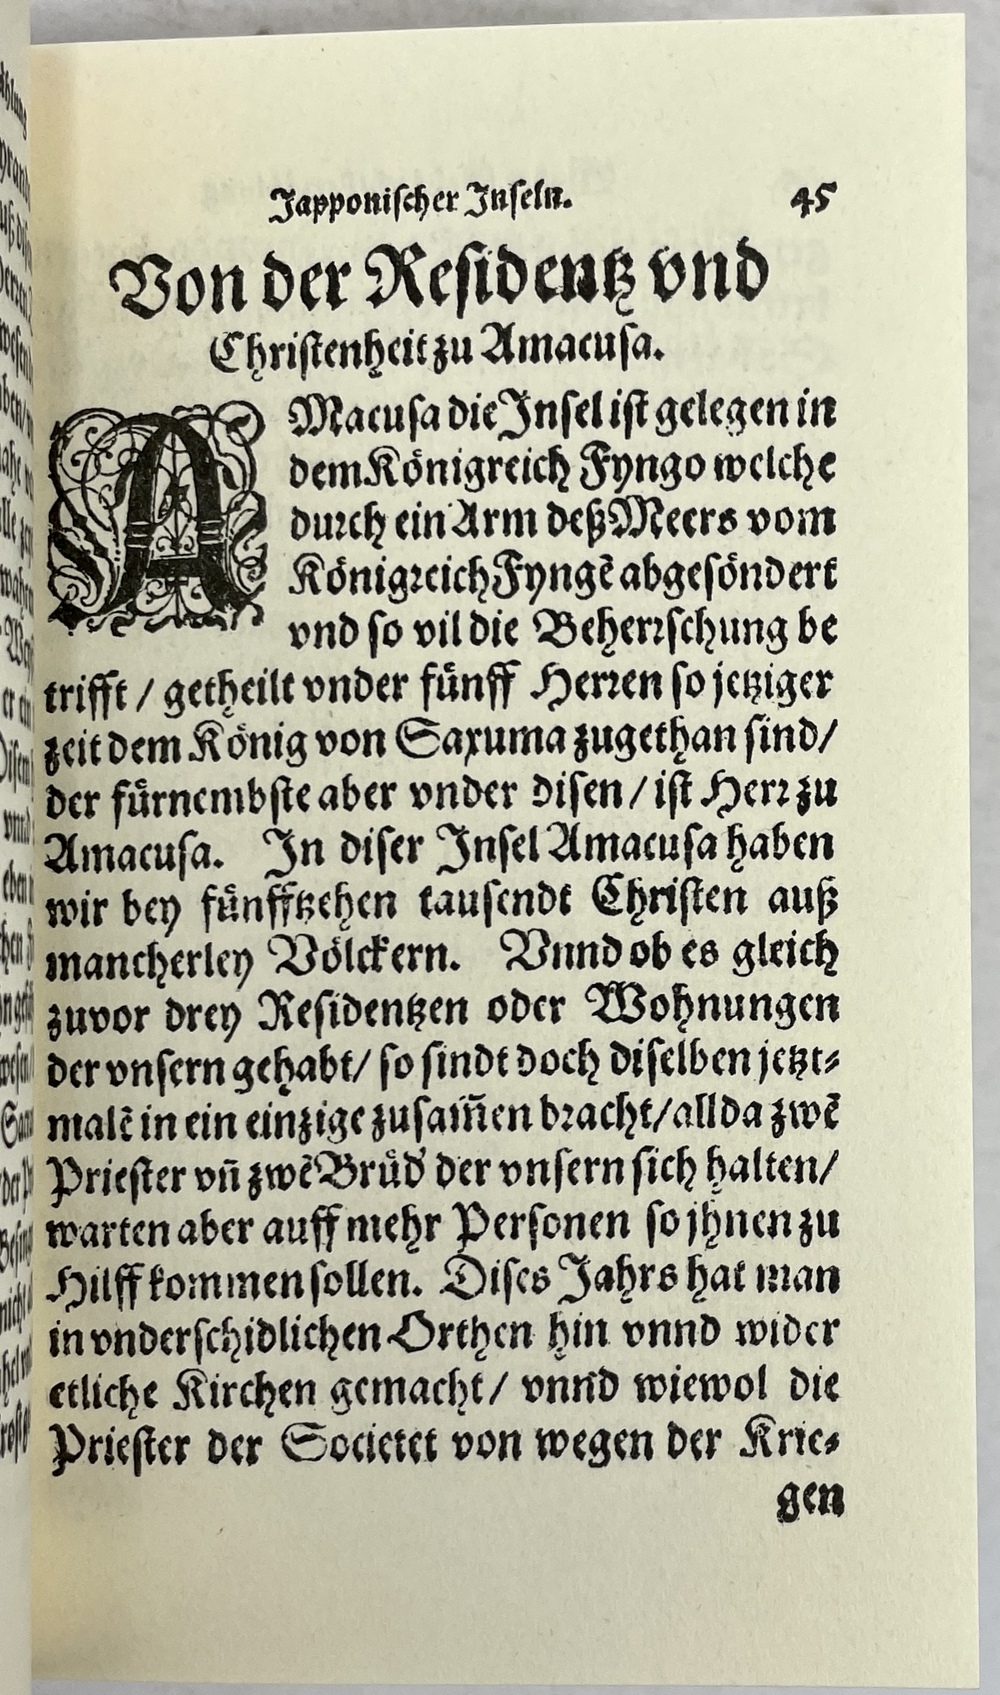 Japponischer Inseln. 45
Von der Residentz vnd
Christenheit zu Amacusa.
AMacusa die Insel ist gelegen in
dem Königreich Fyngo welche
durch ein Arm deß Meers vom
Königreich Fyngē abgesöndert
vnd so vil die Beherrschung be
trifft / getheilt vnder fünff Herren so jetziger
zeit dem König von Saxuma zugethan sind/
der fürnembste aber vnder disen / ist Herr zu
Amacusa. In diser Insel Amacusa haben
wir bey fünfftzehen tausendt Christen auß
mancherley Völckern. Vnnd ob es gleich
zuvor drey Residentzen oder Wohnungen
der vnsern gehabt/ so sindt doch diselben jetzt-
malē in ein einzige zusam̄en bracht/ allda zwē
Priester vn̄ zwē Brüd' der vnsern sich halten/
warten aber auff mehr Personen so jhnen zu
Hilff kommen sollen. Dises Jahrs hat man
in vnderschidlichen Orthen hin vnnd wider
etliche Kirchen gemacht/ vnnd wiewol die
Priester der Societet von wegen der Krie-
gen